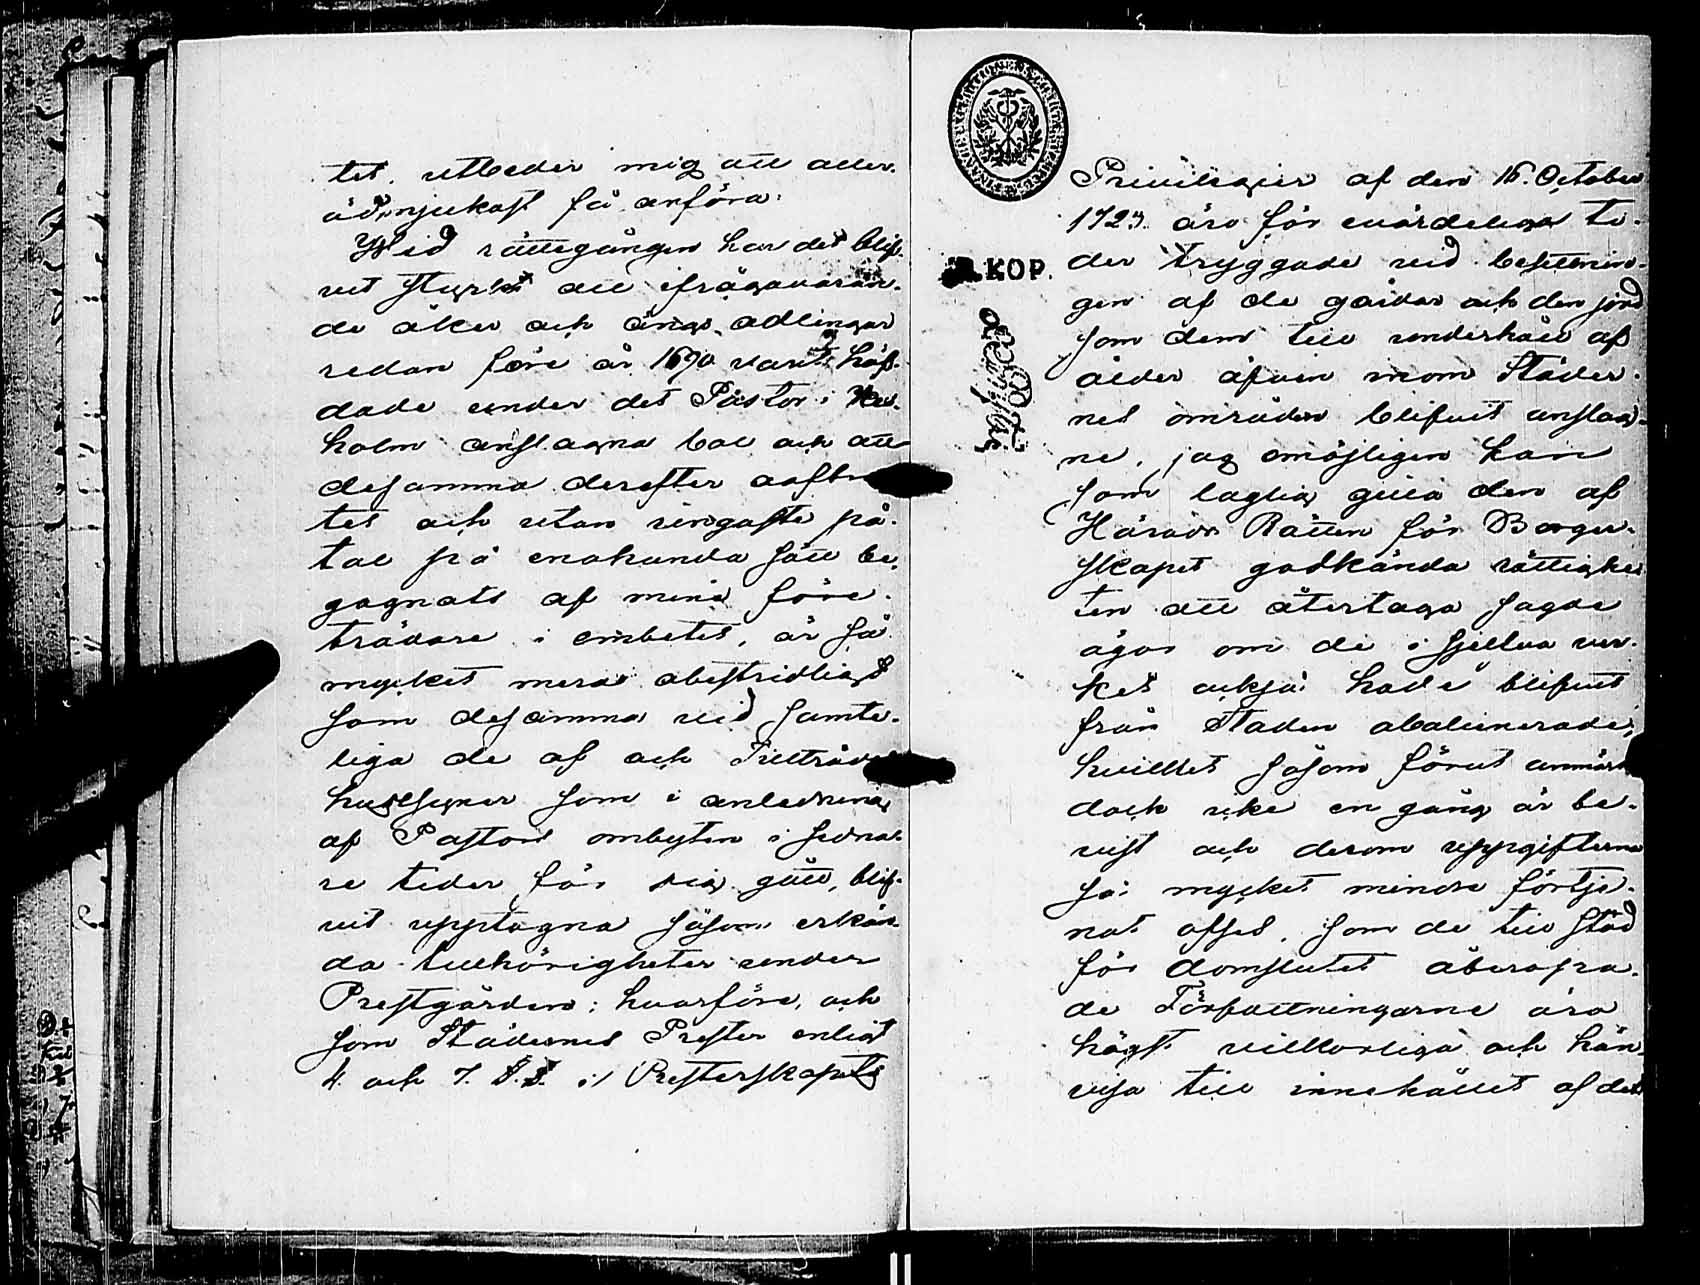 tet, utbeder mig att aller-
ödmjukast få anföra:
Wid rättegången har det blif-
vit styrkt att ifrågavaran-
de åker och ängs odlingar
redan före år 1690 varit häf-
dade under det Pastor i Kex-
holm anslagna bol och att
desamma derefter oafbru-
tet och utan ringaste på-
tal på enahanda sätt be-
gagnats af mine före-
trädare i embetet, är så
mycket mera obestridligt
som desamma vid samte-
liga de af och Tillträdes
husesyner som i anledning
af Pastors ombyten i sedna-
re tider för sig gått, blif-
vit upptagna såsom erkän-
da tillhörigheter under
Prestgården; hvarföre, och
som Städernes Prester enligt
4. och 7. §.§. i Presterskapets
Privilegier af den 16. October
1723 äro för evärdeliga ti-
der tryggade vid besittnin-
gen af de gårdar och den jord
som dem till underhåll af
ålder äfven inom Städer-
nes områden blifvit anslag-
ne, jag omöjligen kan
som laglig gilla den af
Härads Rätten för Borger-
skapet godkända rättighe-
ten att återtaga sagde
ägor om de i sjelfva ver-
ket också hade blifvit
från Staden abalienerade;
hvilket såsom förut anmärkt
dock icke en gång är be-
vist och derom uppgifterna
så mycket mindre förtje-
nat afsed, som de till stöd
för domslutet åberopa-
de Författningarne äro
högst vilkorliga och hän-
visa till innehållet af det
KOP.